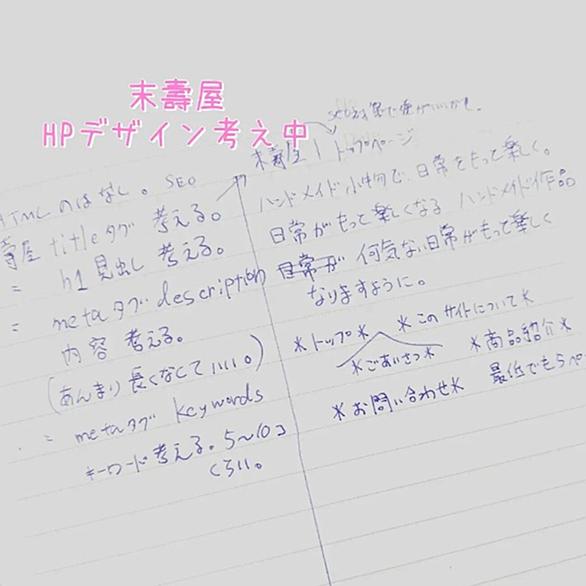 末壽屋
HPデザイン考え中
HTMLのはなし。SEO
壽屋 titleタグ 考える。
= h1見出し 考える。
= metaタグ description
内容 考える。
(あんまり長くなくていい。)
= metaタグ keywords
キーワード考える。5〜10コ
くらい。
末壽屋 | トップページ
ハンドメイド小物で、日常をもっと楽しく。
日常がもっと楽しくなる ハンドメイド作品
日常が 何気ない日常がもっと楽しく
なりますように。
*トップ* *このサイトについて*
*ごあいさつ* *商品紹介*
*お問い合わせ* 最低でも5ペ